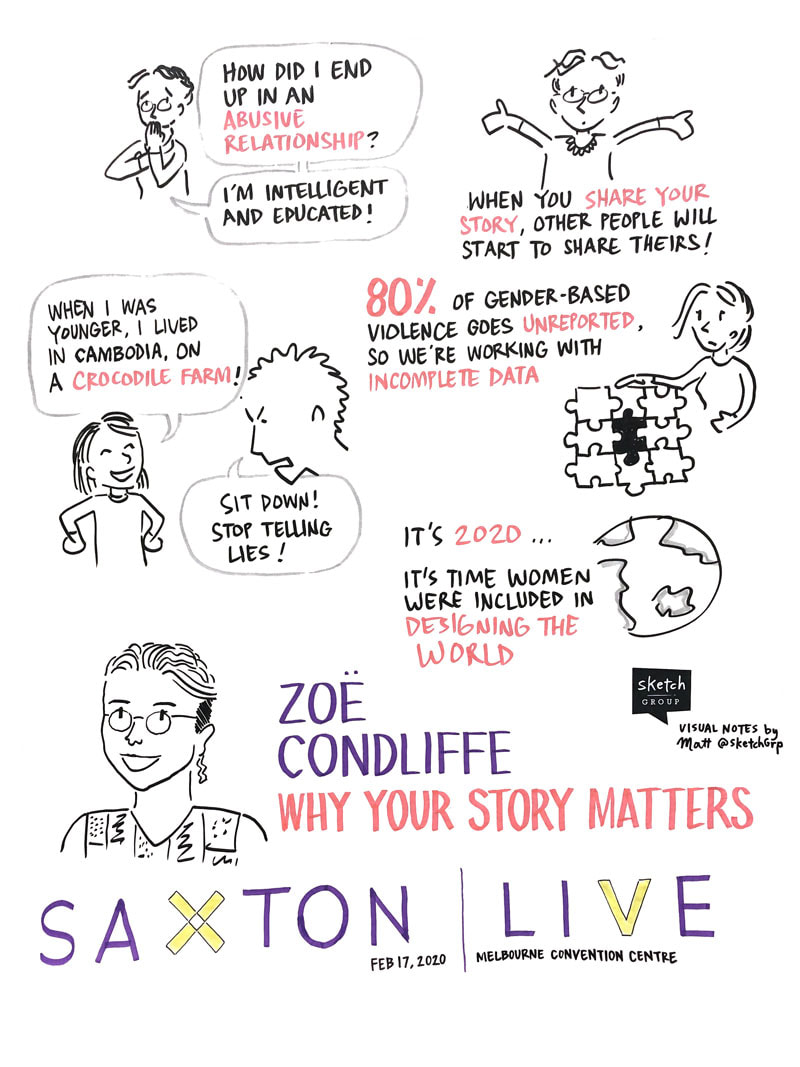 HOW DID I END
UP IN AN
ABUSIVE
RELATIONSHIP?
I'M INTELLIGENT
AND EDUCATED!
WHEN YOU SHARE YOUR
STORY, OTHER PEOPLE WILL
START TO SHARE THEIRS!
WHEN I WAS
YOUNGER, I LIVED
IN CAMBODIA, ON
A CROCODILE FARM!
SIT DOWN!
STOP TELLING
LIES!
80% OF GENDER-BASED
VIOLENCE GOES UNREPORTED,
SO WE'RE WORKING WITH
INCOMPLETE DATA
IT'S 2020 ...
IT'S TIME WOMEN
WERE INCLUDED IN
DESIGNING THE
WORLD
sketch
GROUP
VISUAL NOTES by
Matt @sketchGrp
ZOË
CONDLIFFE
WHY YOUR STORY MATTERS
SAXTON | LIVE
FEB 17, 2020
MELBOURNE CONVENTION CENTRE